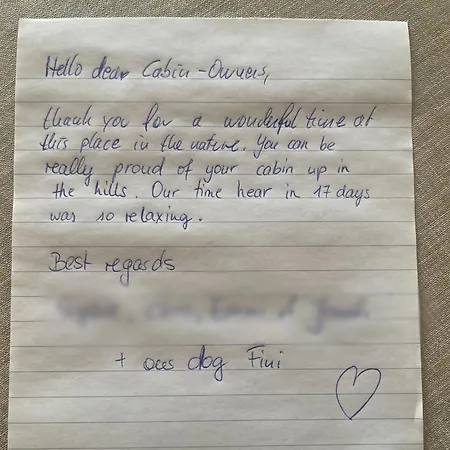 Hello dear Cabin-Owners,
thank you for a wonderful time at
this place in the nature. You can be
really proud of your cabin up in
the hills. Our time hear in 17 days
was so relaxing.
Best regards
+ our dog Fini